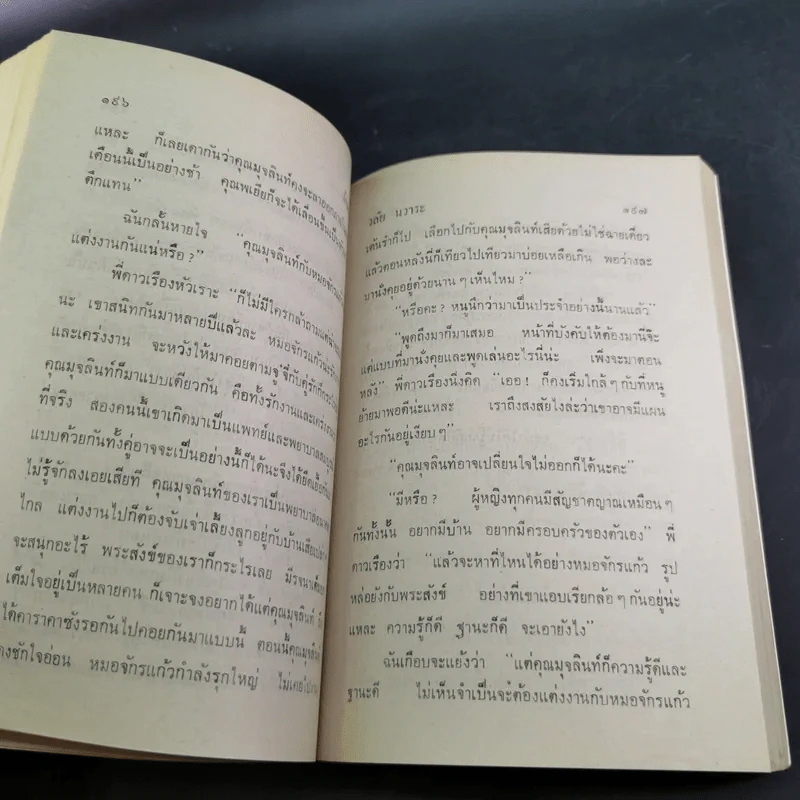 ๑๙๖
แหละ ก็เลยเดากันว่าคุณมุจลินท์คงจะลาออก
เดือนนี้เป็นอย่างช้า คุณพเยียก็จะได้เลื่อนขึ้นเป็น
ตึกแทน”
ฉันกลั้นหายใจ “คุณมุจลินท์กับหมอจักรแก้ว
แต่งงานกันแน่หรือ?”
พี่ดาวเรืองหัวเราะ “ก็ไม่มีใครกล้าถามแต่
นะ เขาสนิทกันมาหลายปีแล้วละ หมอจักรแก้ว
และเคร่งงาน จะหวังให้มาคอยตามจู๋จี๋กับคู่รักก็
คุณมุจลินท์ก็มาแบบเดียวกัน คือทั้งรักงานและเคร่งงาน
ที่จริง สองคนนี้เขาเกิดมาเป็นแพทย์และพยาบาล
แบบด้วยกันทั้งคู่อาจจะเป็นอย่างนี้ก็ได้นะจึงได้ยืดเยื้อกัน
ไม่รู้จักลงเอยเสียที คุณมุจลินท์ของเราเป็นพยาบาล
ไกล แต่งงานไปก็ต้องจับเจ่าเลี้ยงลูกอยู่กับบ้านเสีย
จะสนุกอะไร้ พระสังข์ของเราก็กระไรเลย มีรจนา
เต็มใจอยู่เป็นหลายคน ก็เจาะจงอยากได้แต่คุณมุจลินท์
ได้คาราคาซังรอกันไปคอยกันมาแบบนี้ ตอนนี้คุณมุจลินท์
คงชักใจอ่อน หมอจักรแก้วกำลังรุกใหญ่ ไม่เคยไป
วลัย นวาระ ๑๙๗
เต้นรำก็ไป เลือกไปกับคุณมุจลินท์เสียด้วยไม่ใช่ฉายเดี่ยว
แล้วตอนหลังนี่ก็เทียวไปเทียวมาบ่อยเหลือเกิน พอว่างละ
มานั่งคุยอยู่ด้วยนาน ๆ เห็นไหม?”
“หรือคะ? หนูนึกว่ามาเป็นประจำอย่างนี้นานแล้ว”
“พูดถึงมาก็มาเสมอ หน้าที่บังคับให้ต้องมานี่จ๊ะ
แต่แบบที่มานั่งคุยและพูดเล่นอะไรนี่น่ะ เพิ่งจะมาตอน
หลัง” พี่ดาวเรืองนิ่งคิด “เออ! ก็คงเริ่มใกล้ ๆ กับที่หนู
ย้ายมาพอดีน่ะแหละ เราถึงสงสัยไงล่ะว่าเขาอาจมีแผน
อะไรกันอยู่เงียบ ๆ”
“คุณมุจลินท์อาจเปลี่ยนใจไม่ออกก็ได้นะคะ”
“มีหรือ? ผู้หญิงทุกคนมีสัญชาตญาณเหมือน ๆ
กันทั้งนั้น อยากมีบ้าน อยากมีครอบครัวของตัวเอง” พี่
ดาวเรืองว่า “แล้วจะหาที่ไหนได้อย่างหมอจักรแก้ว รูป
หล่อยังกับพระสังข์ อย่างที่เขาแอบเรียกล้อ ๆ กันอยู่น่ะ
แหละ ความรู้ก็ดี ฐานะก็ดี จะเอายังไง”
ฉันเกือบจะแย้งว่า “แต่คุณมุจลินท์ก็ความรู้ดีและ
ฐานะดี ไม่เห็นจำเป็นจะต้องแต่งงานกับหมอจักรแก้ว